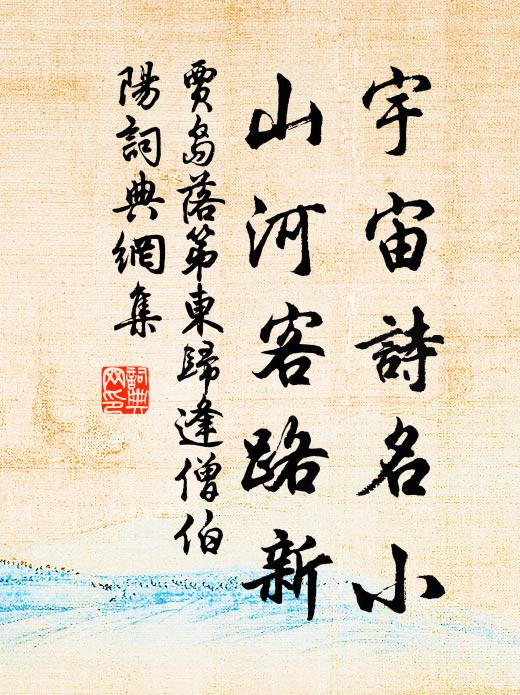 宇宙詩名小
山河客路新
賈島落第東歸逢僧伯
陽詞典網集
詞典
网印